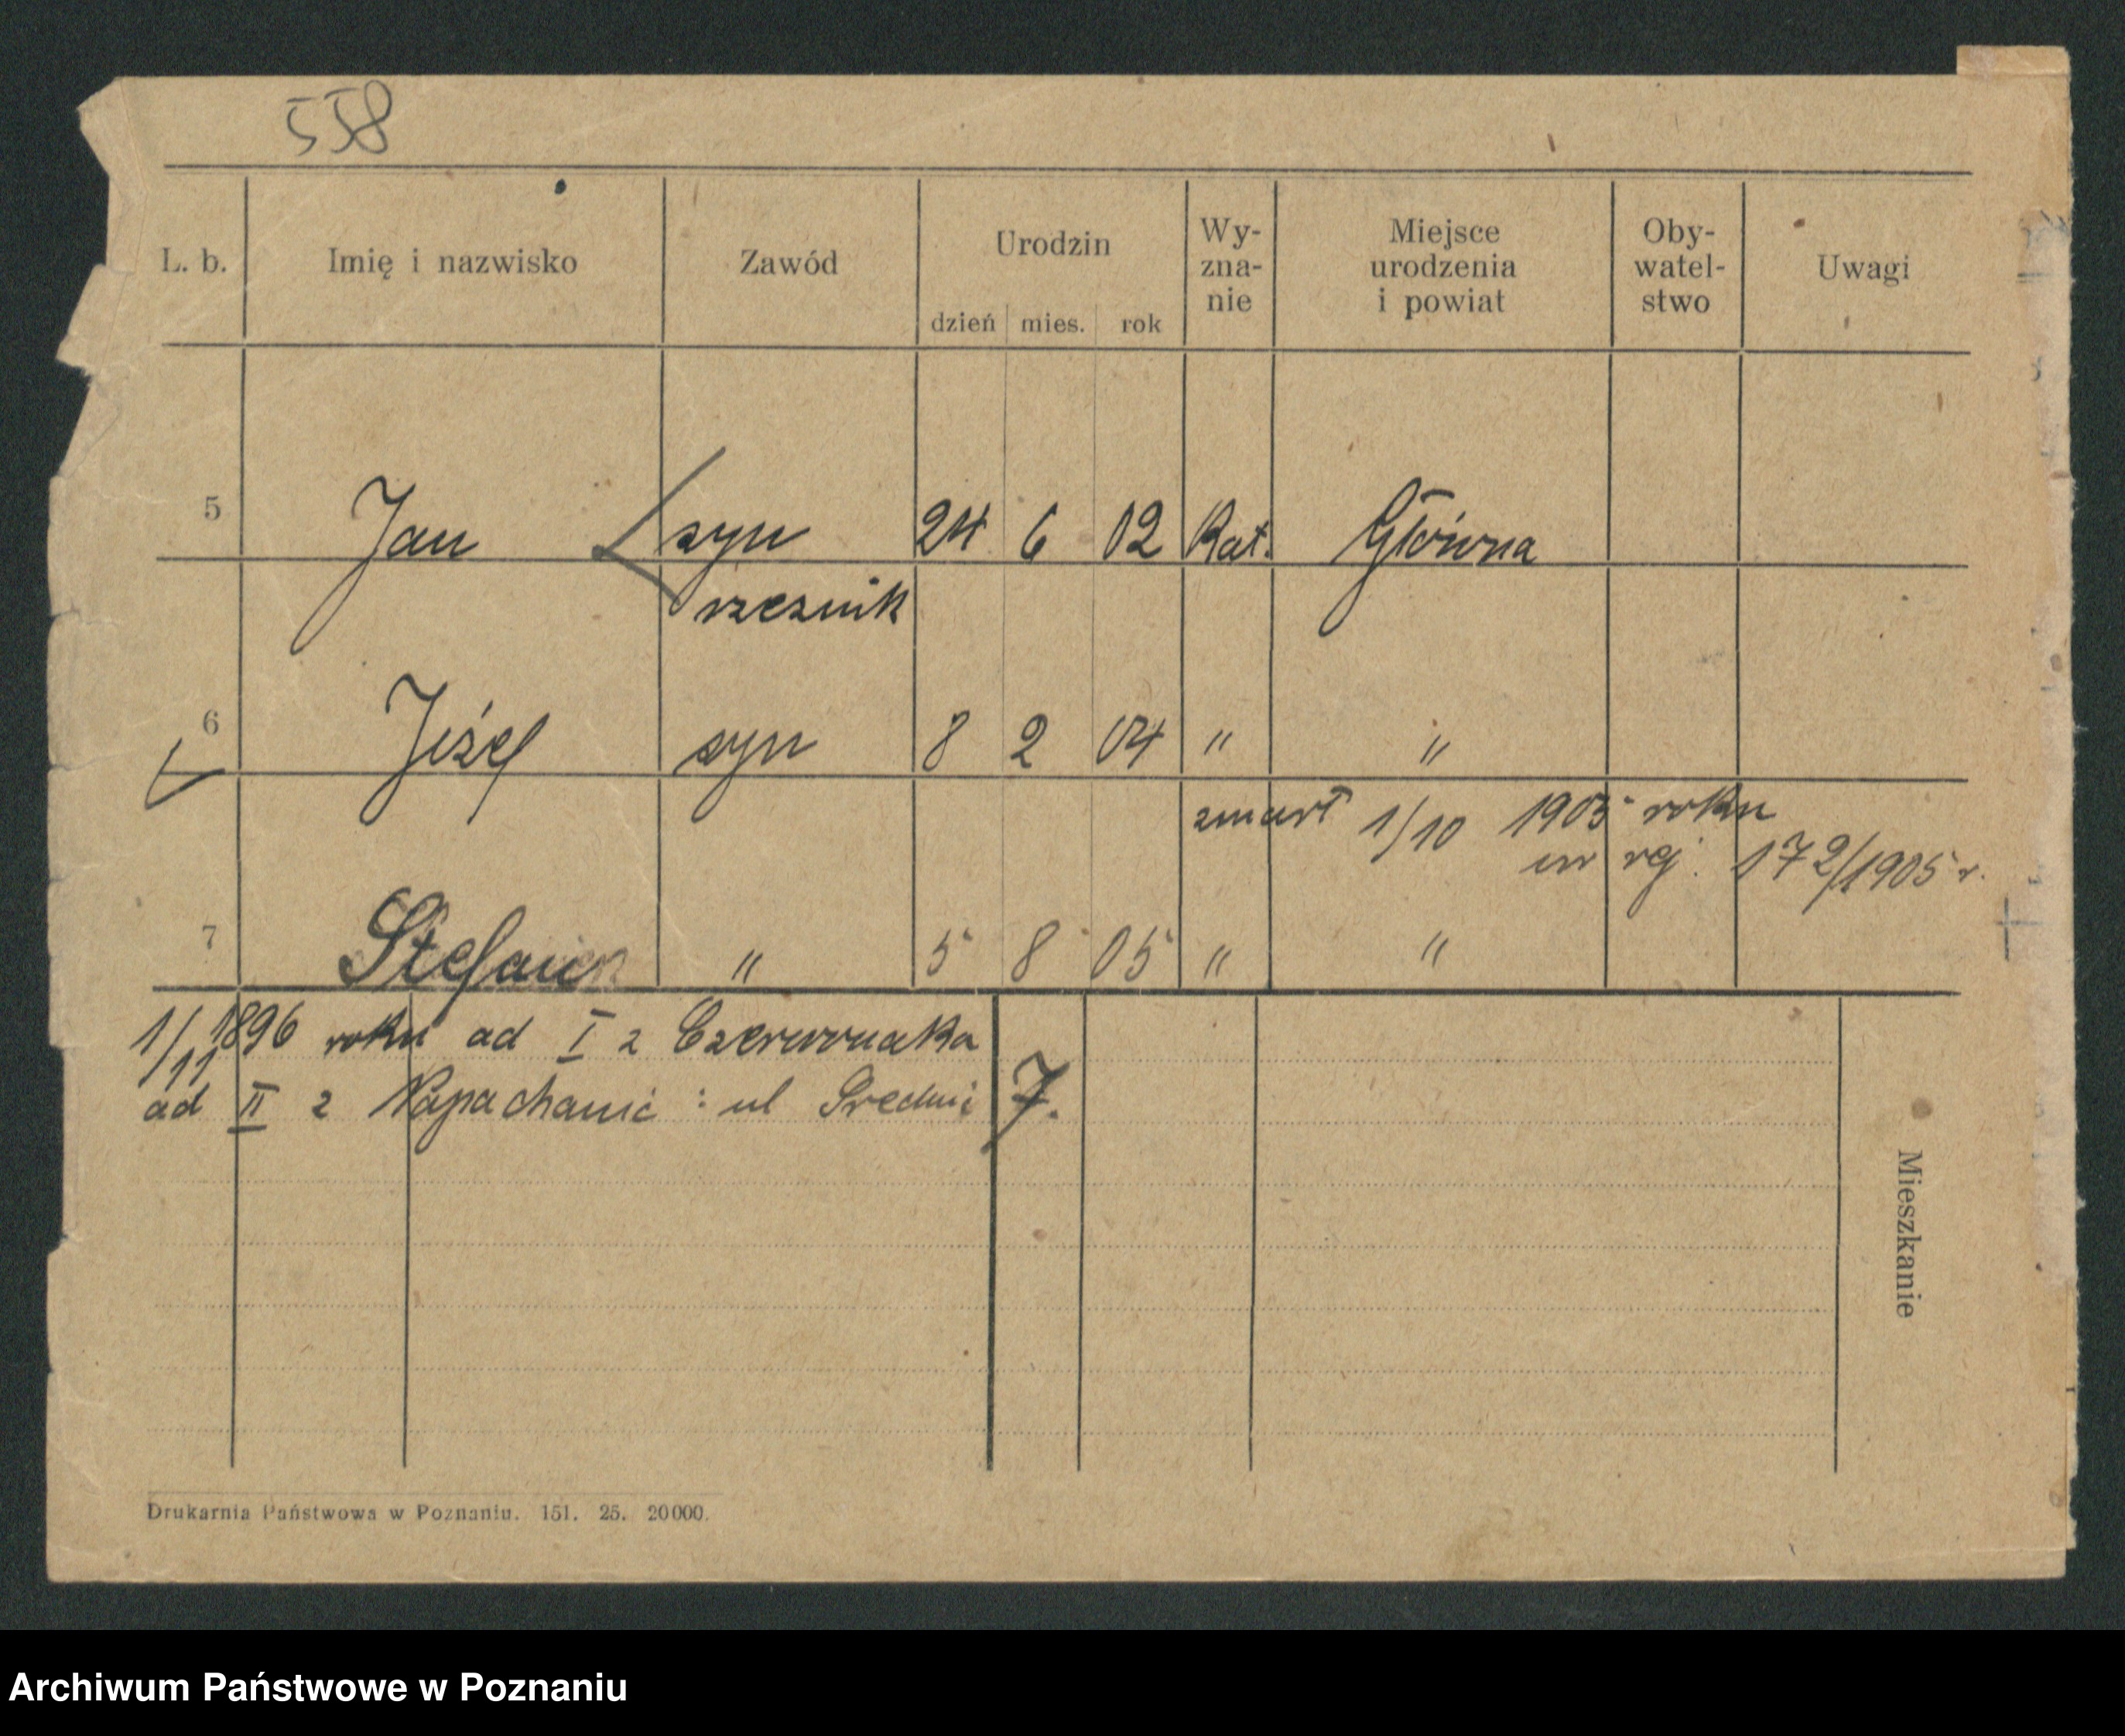 558
L. b. Imię i nazwisko Zawód Urodzin dzień mies. rok Wy- zna- nie Miejsce urodzenia i powiat Oby- watel- stwo Uwagi
5 Jan syn 24 6 02 Kat. Główna
rzeznik
6 Józef syn 8 2 04 " "
zmarł 1/10 1905 roku
nr rej. 172/1905 r.
7 Stefan " 5 8 05 " "
1/11 1896 roku ad I z Czerwonaka
ad II z Napachanie : ul Średnia 7.
Mieszkanie
Drukarnia Państwowa w Poznaniu. 151. 25. 20000.
Archiwum Państwowe w Poznaniu